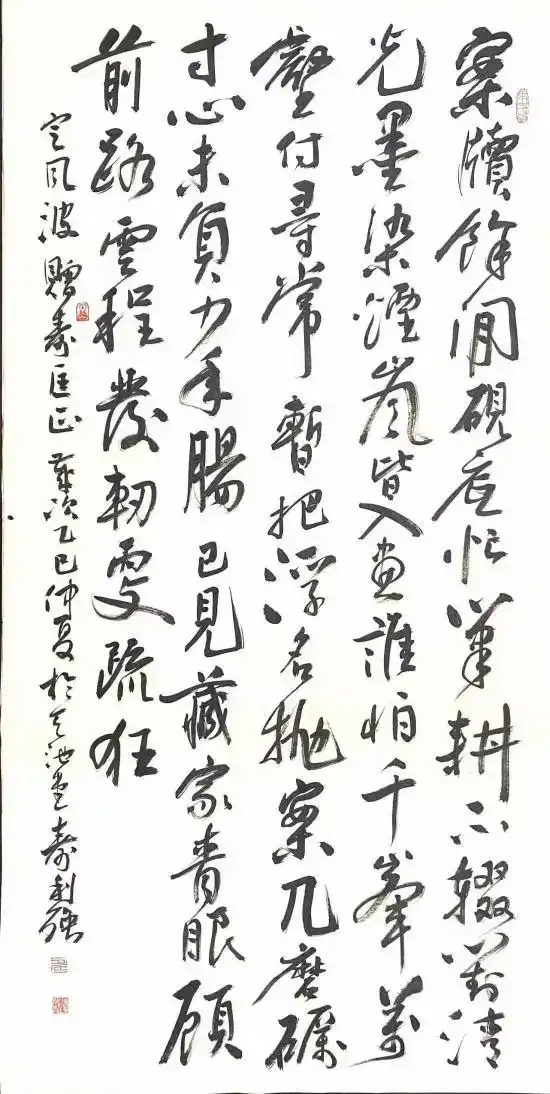 案牘餘閒硯底忙筆耕不輟對清
光墨染煙嵐皆入畫誰怕千峯萬
壑付尋常暫把浮名拋案几磨礪
寸心未負少年腸已見藏家青眼顧
前路雲程發軔更疏狂
定風波 贈壽匡正 歲次乙巳仲夏於天池堂壽利強